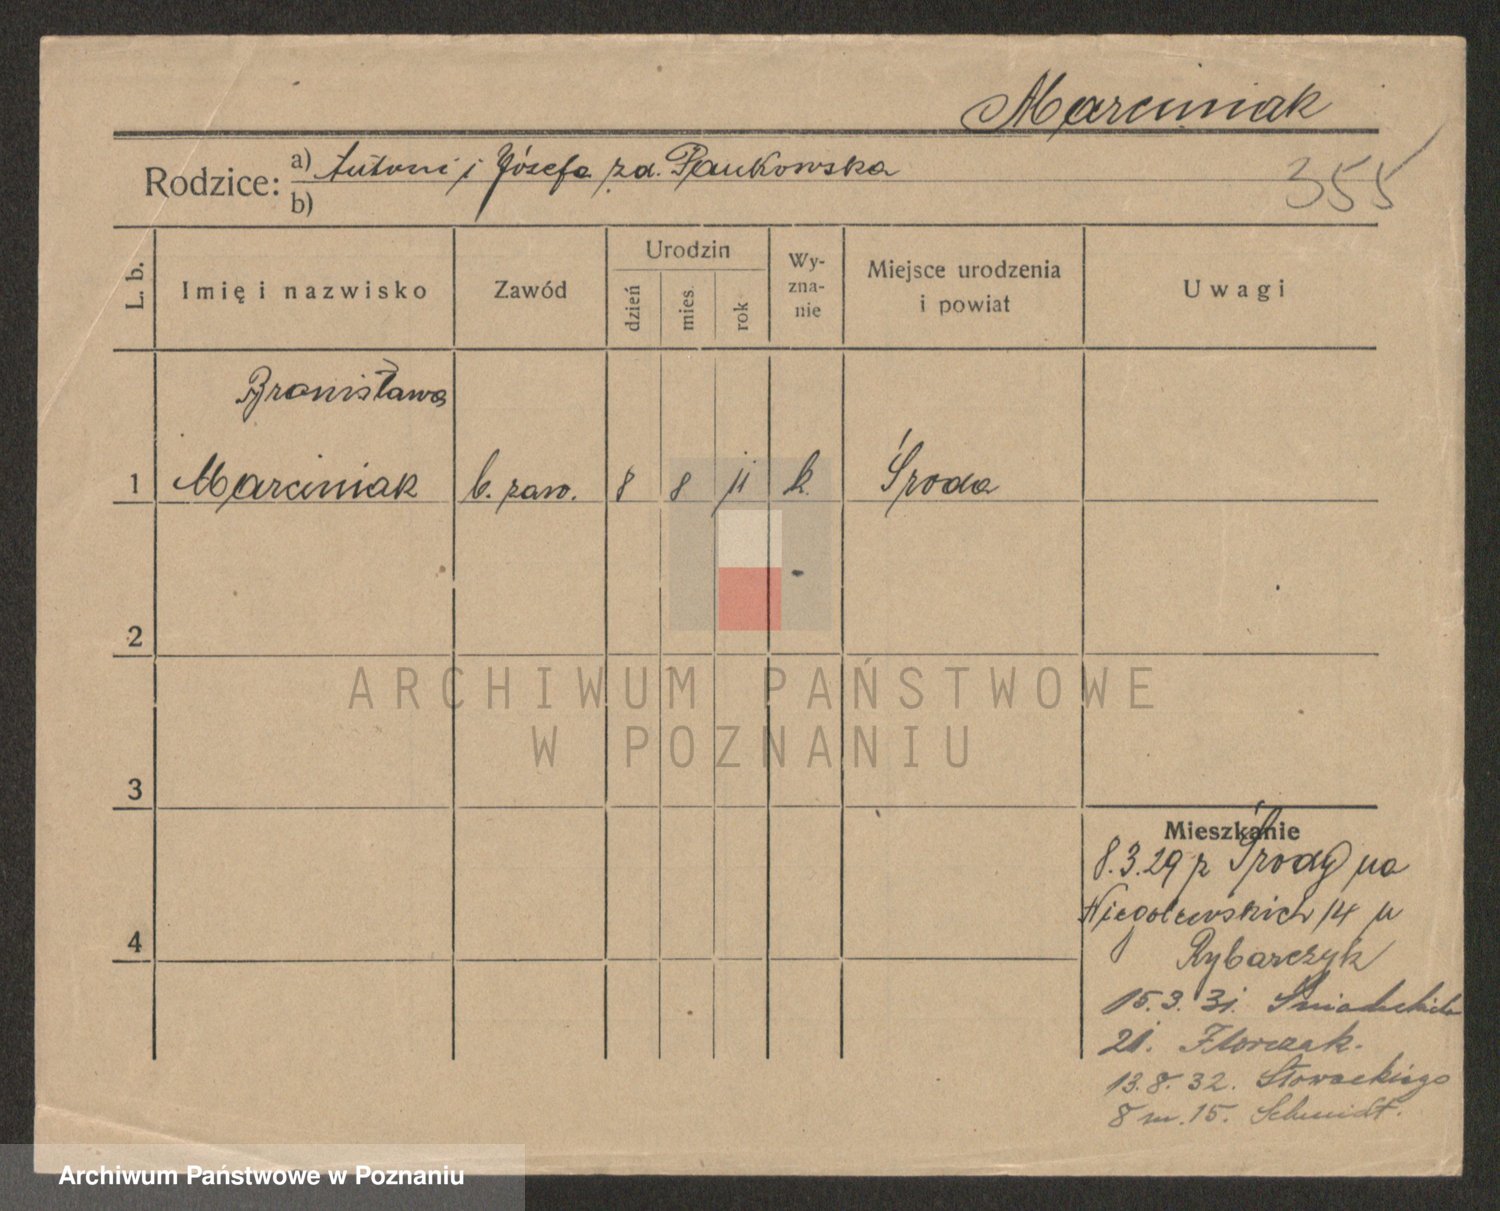 Marciniak
355
Rodzice: a) Antoni i Józefa zd. Pankowska
b)
L. b.
Imię i nazwisko
Zawód
Urodzin
dzień
mies
rok
Wy-
zna-
nie
Miejsce urodzenia
i powiat
Uwagi
Bronisława
1 Marciniak b. zaw. 8 8 11 k. Środa
2
3
4
Mieszkanie
8.3.29 z Środy na
Niegolewskich 14 u
Rybarczyk
15.3.31. Śniadeckich
21. Florczak.
13.8.32. Słowackiego
8 m.15. Schmidt.
ARCHIWUM PAŃSTWOWE
W POZNANIU
Archiwum Państwowe w Poznaniu